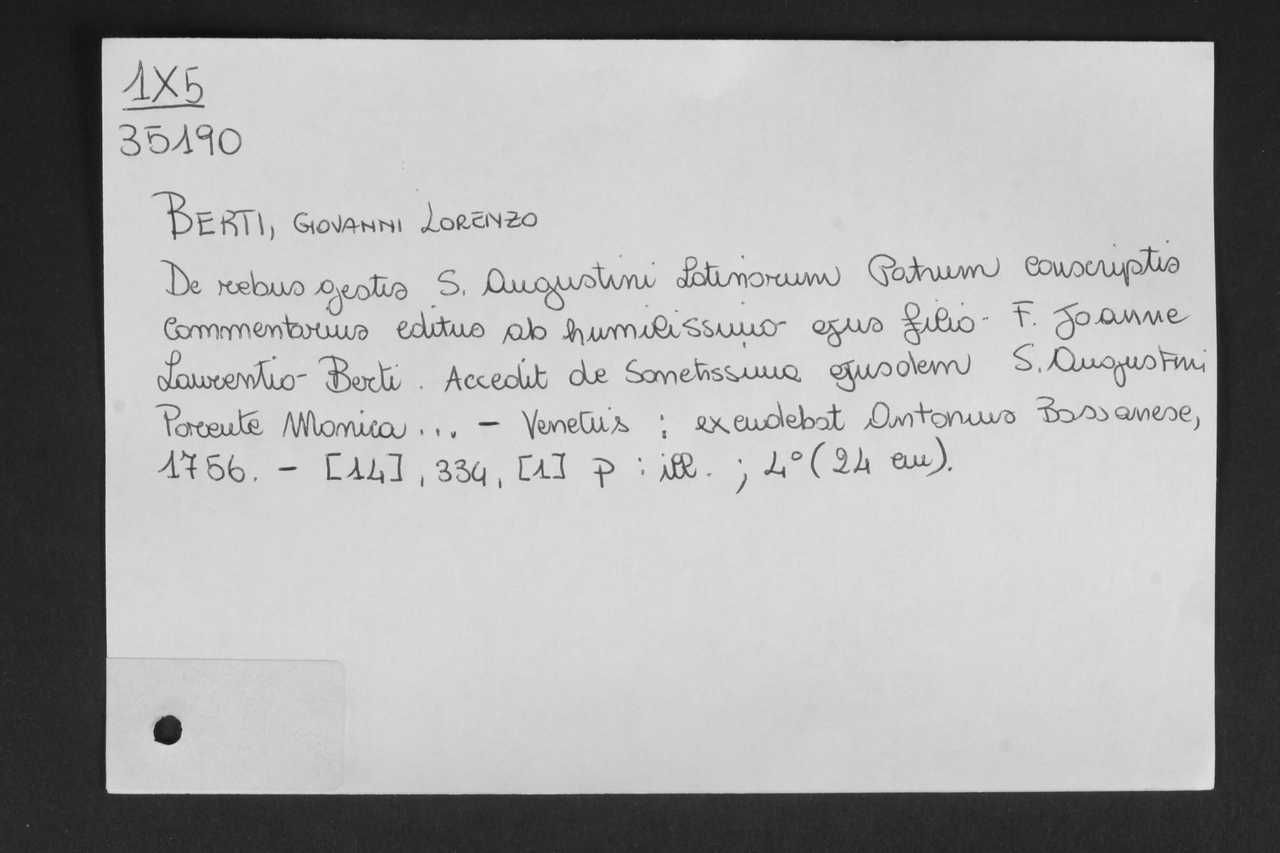 1X5
35190
BERTI, GIOVANNI LORENZO
De rebus gestis S. Augustini Latinorum Patrum conscriptis
Commentarius editus ab humilissimo ejus filio F. Joanne
Laurentio Berti. Accedit de Sanctissima ejusdem S. Augustini
Parente Monica ... - Venetiis : excudebat Antonius Bassanese,
1756. - [14], 334, [1] p : ill. ; 4° (24 cm).